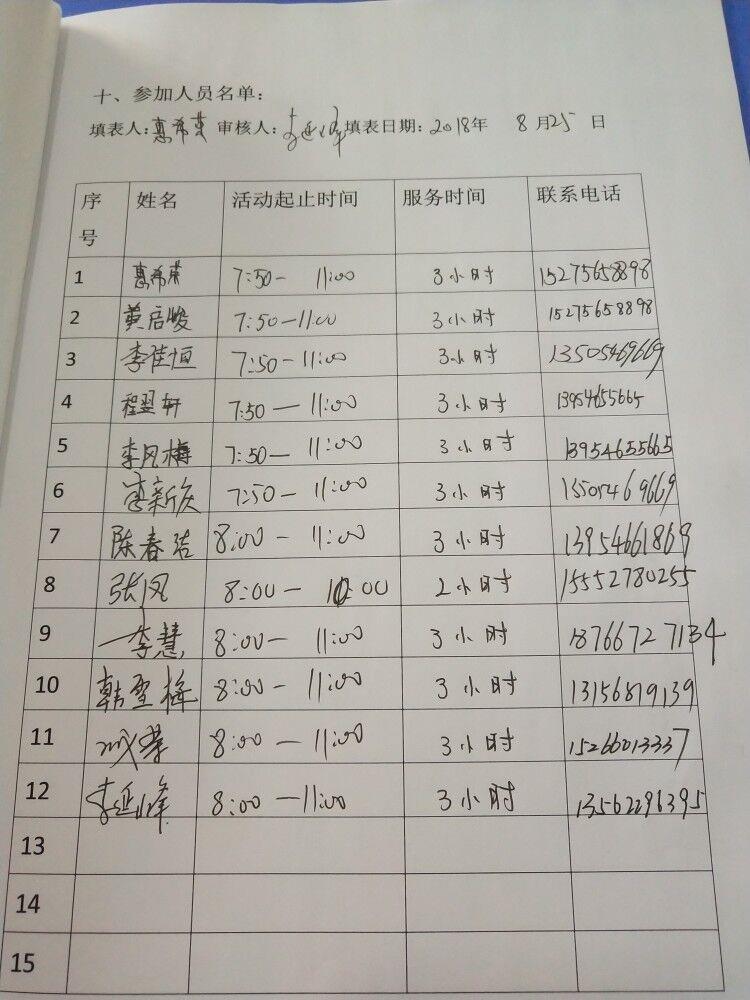 十、参加人员名单：
填表人：惠希荣 审核人：李延峰 填表日期：2018年 8月25日
序号 姓名 活动起止时间 服务时间 联系电话
1 惠希荣 7:50— 11:00 3小时 15275658898
2 黄启骏 7:50—11:00 3小时 15275658898
3 李佳恒 7:50—11:00 3小时 13505469669
4 程翌轩 7:50—11:00 3小时 13954655665
5 李风梅 7:50—11:00 3小时 13954655665
6 李新欣 7:50—11:00 3小时 13505469669
7 陈春洁 8:00—11:00 3小时 13954661869
8 张风 8:00—10:00 2小时 15552780255
9 李慧 8:00—11:00 3小时 18766727134
10 韩雪梅 8:00—11:00 3小时 13156819139
11 8:00—11:00 3小时 15266013337
12 李延峰 8:00—11:00 3小时 13562296395
13
14
15